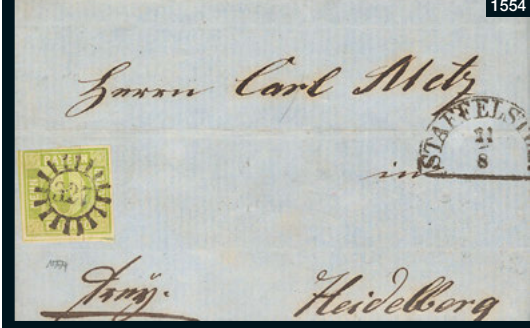 1554
Herrn Carl Metz
STAFFELST
21
8
in
frey.
Heidelberg